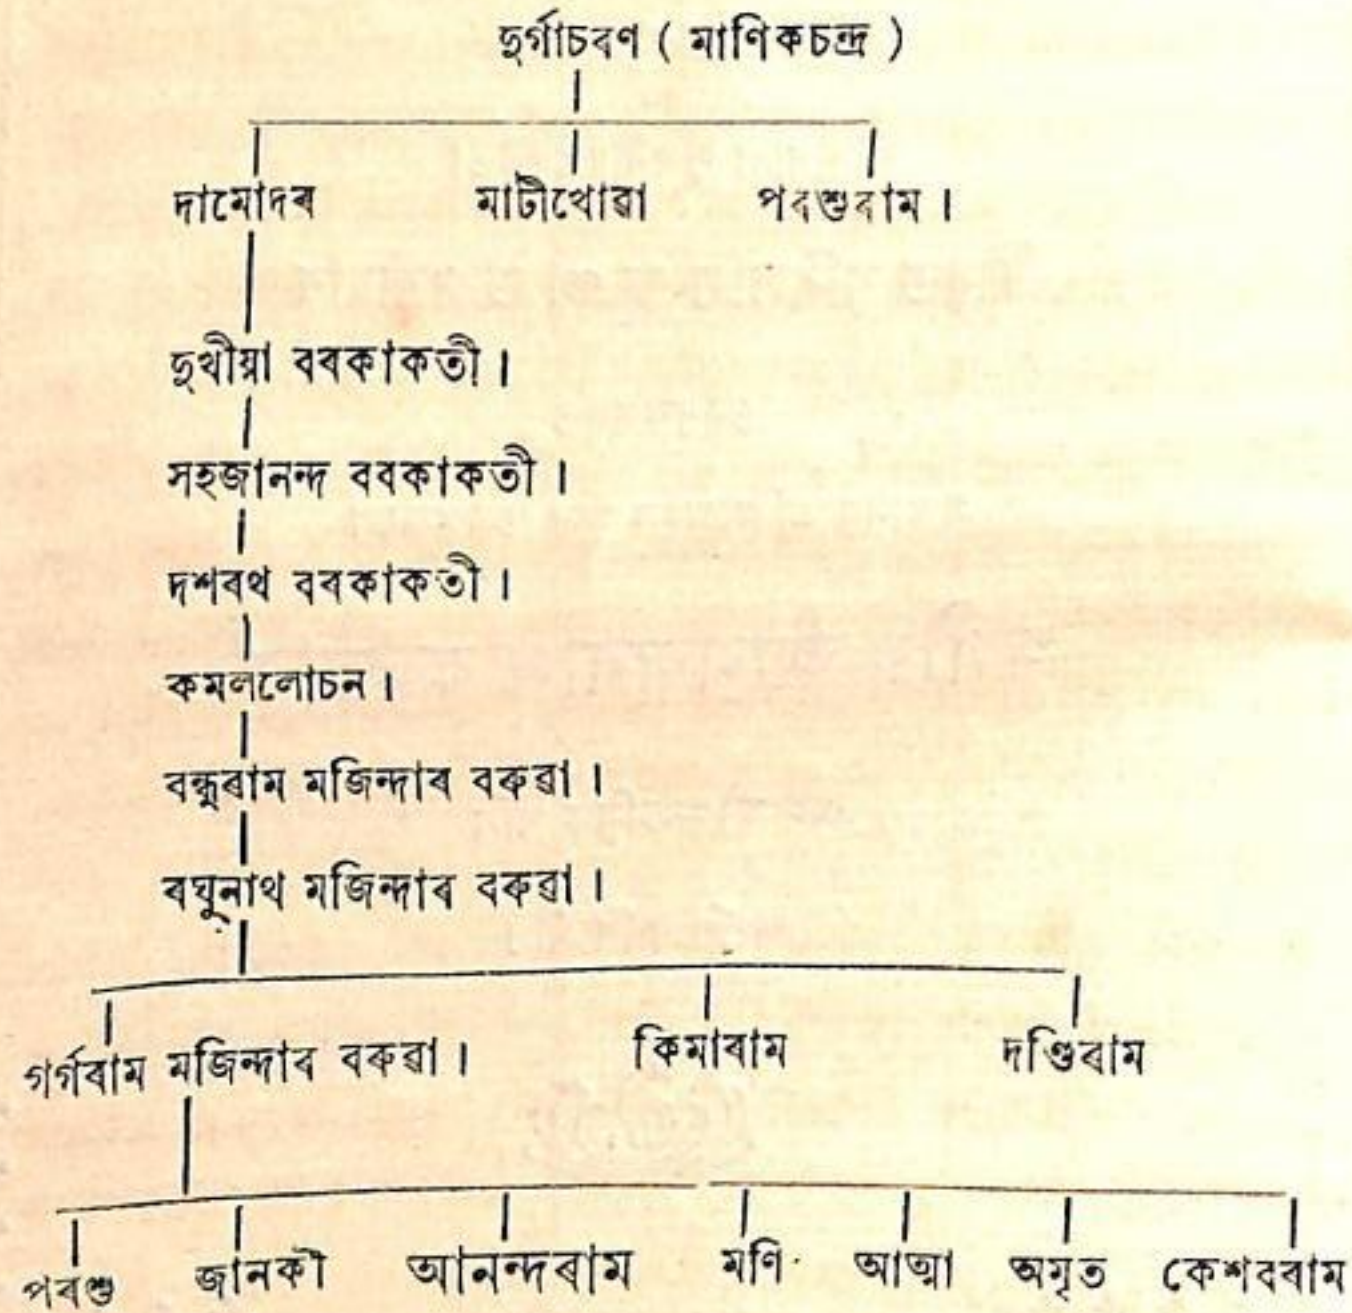 দুৰ্গাচৰণ ( মাণিকচন্দ্ৰ )
দামোদৰ মাটীখোৱা পৰশুৰাম ।
দুখীয়া বৰকাকতী ।
সহজানন্দ বৰকাকতী ।
দশৰথ বৰকাকতী ।
কমললোচন ।
বন্ধুৰাম মজিন্দাৰ বৰুৱা ।
ৰঘুনাথ মজিন্দাৰ বৰুৱা ।
গৰ্গৰাম মজিন্দাৰ বৰুৱা । কিমাৰাম দণ্ডিৰাম
পৰশু জানকী আনন্দৰাম মণি আত্মা অমৃত কেশবৰাম